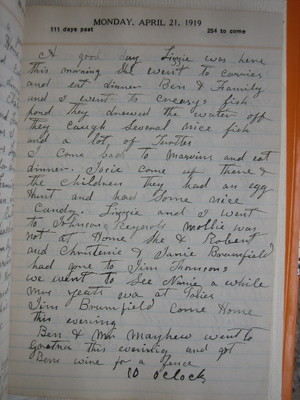 MONDAY, APRIL 21, 1919
111 days past 254 to come
A good day Lizzie was here
this morning she went to
and eat dinner Ben & Family
and I went to Creasys fish
pond they drawed the water off
they caugh several nice fish
and a lot of Turtles
I come back to Marvins and eat
dinner. Josie come up there &
the Childrens they had an egg
Hunt and had some nice
Candy. Lizzie and I went
to Johnson Reynols Mollie was
not at Home she & Robert
and Christenie & Janie Brumfield
had gone to Jim Thomsons
we went to see Nanie a while
Mrs Yeats wa at Jakes
Jim Brumfield come Home
this evening
Ben & Mr Mayhew went to
Gretna this evening and got
Ben wire for a fence
10 oclock